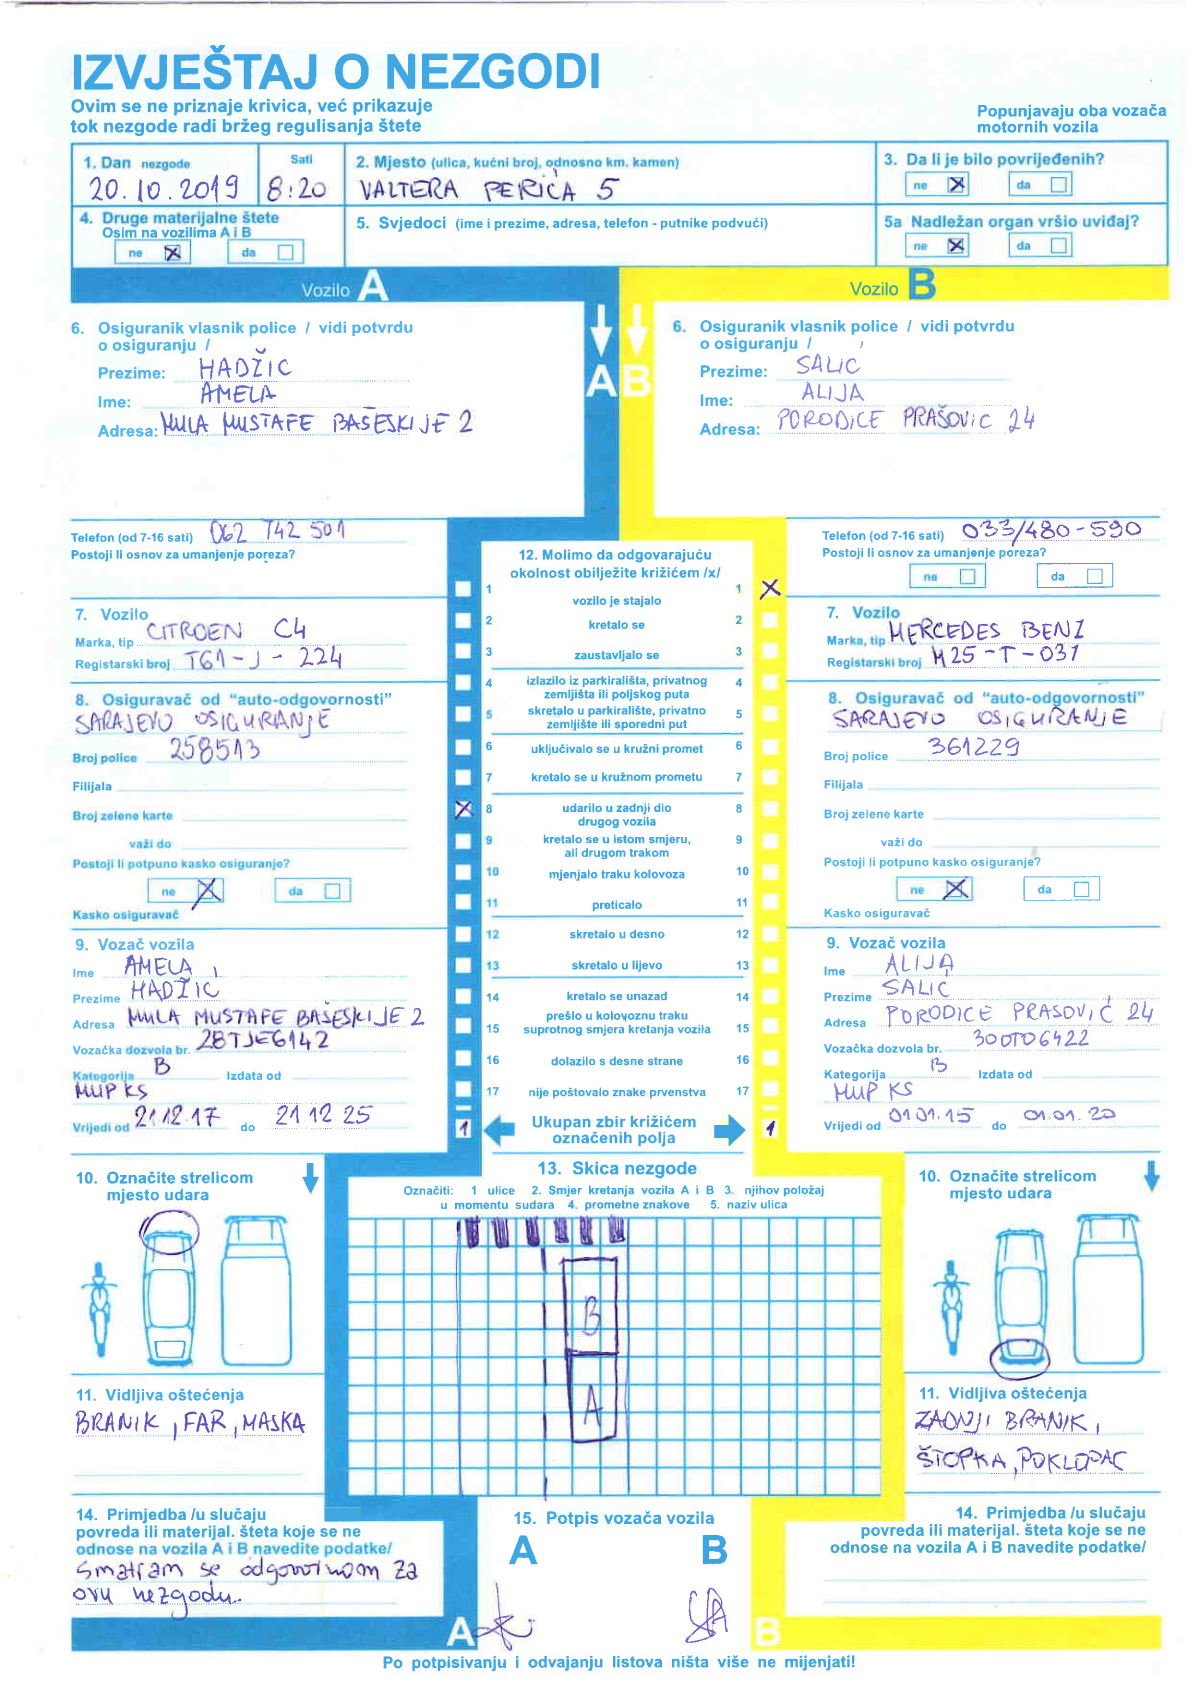 IZVJEŠTAJ O NEZGODI
Ovim se ne priznaje krivica, već prikazuje
tok nezgode radi bržeg regulisanja štete
Popunjavaju oba vozača
motornih vozila
1. Dan nezgode
20.10.2019
Sati
8:20
2. Mjesto (ulica, kućni broj, odnosno km. kamen)
VALTERA PERIĆA 5
3. Da li je bilo povrijeđenih?
ne X da
4. Druge materijalne štete
Osim na vozilima A i B
ne X da
5. Svjedoci (ime i prezime, adresa, telefon - putnike podvući)
5a Nadležan organ vršio uviđaj?
ne X da
Vozilo A
Vozilo B
A B
6. Osiguranik vlasnik police / vidi potvrdu
o osiguranju /
Prezime: HADŽIC
Ime: AMELA
Adresa: MULA MUSTAFE BAŠESKIJE 2
6. Osiguranik vlasnik police / vidi potvrdu
o osiguranju /
Prezime: SALIC
Ime: ALIJA
Adresa: PORODICE PRAŠOVIC 24
Telefon (od 7-16 sati) 062 742 501
Postoji li osnov za umanjenje poreza?
7. Vozilo
Marka, tip CITROEN C4
Registarski broj T61-J-224
8. Osiguravač od “auto-odgovornosti”
SARAJEVO OSIGURANJE
Broj police 258513
Filijala
Broj zelene karte
važi do
Postoji li potpuno kasko osiguranje?
ne X da
Kasko osiguravač
9. Vozač vozila
Ime AMELA
Prezime HADŽIC
Adresa MULA MUSTAFE BAŠESKIJE 2
Vozačka dozvola br. 2BTJE6142
Kategorija B Izdata od
MUP KS
Vrijedi od 21.12.17 do 21 12 25
12. Molimo da odgovarajuću
okolnost obilježite križićem /x/
1 vozilo je stajalo 1 X
2 kretalo se 2
3 zaustavljalo se 3
4 izlazilo iz parkirališta, privatnog 4
zemljišta ili poljskog puta
5 skretalo u parkiralište, privatno 5
zemljište ili sporedni put
6 uključivalo se u kružni promet 6
7 kretalo se u kružnom prometu 7
X 8 udarilo u zadnji dio 8
drugog vozila
9 kretalo se u istom smjeru, 9
ali drugom trakom
10 mjenjalo traku kolovoza 10
11 preticalo 11
12 skretalo u desno 12
13 skretalo u lijevo 13
14 kretalo se unazad 14
prešlo u kolovoznu traku
15 suprotnog smjera kretanja vozila 15
16 dolazilo s desne strane 16
17 nije poštovalo znake prvenstva 17
1 Ukupan zbir križićem 1
označenih polja
Telefon (od 7-16 sati) 033/480-590
Postoji li osnov za umanjenje poreza?
ne da
7. Vozilo
Marka, tip MERCEDES BENZ
Registarski broj M25-T-031
8. Osiguravač od “auto-odgovornosti”
SARAJEVO OSIGURANJE
Broj police 361229
Filijala
Broj zelene karte
važi do
Postoji li potpuno kasko osiguranje?
ne X da
Kasko osiguravač
9. Vozač vozila
Ime ALIJA
Prezime SALIC
Adresa PORODICE PRASOVIĆ 24
Vozačka dozvola br. 300TO6422
Kategorija B Izdata od
MUP KS
Vrijedi od 01 01.15 do 01.01.20
10. Označite strelicom
mjesto udara
11. Vidljiva oštećenja
BRANIK, FAR, MASKA
13. Skica nezgode
Označiti: 1 ulice 2. Smjer kretanja vozila A i B 3. njihov položaj
u momentu sudara 4. prometne znakove 5. naziv ulica
B
A
10. Označite strelicom
mjesto udara
11. Vidljiva oštećenja
ZADNJI BRANIK,
ŠTOPKA, POKLOPAC
14. Primjedba /u slučaju
povreda ili materijal. šteta koje se ne
odnose na vozila A i B navedite podatke/
Smatram se odgovornom za
ovu nezgodu.
15. Potpis vozača vozila
A B
14. Primjedba /u slučaju
povreda ili materijal. šteta koje se ne
odnose na vozila A i B navedite podatke/
A B
Po potpisivanju i odvajanju listova ništa više ne mijenjati!